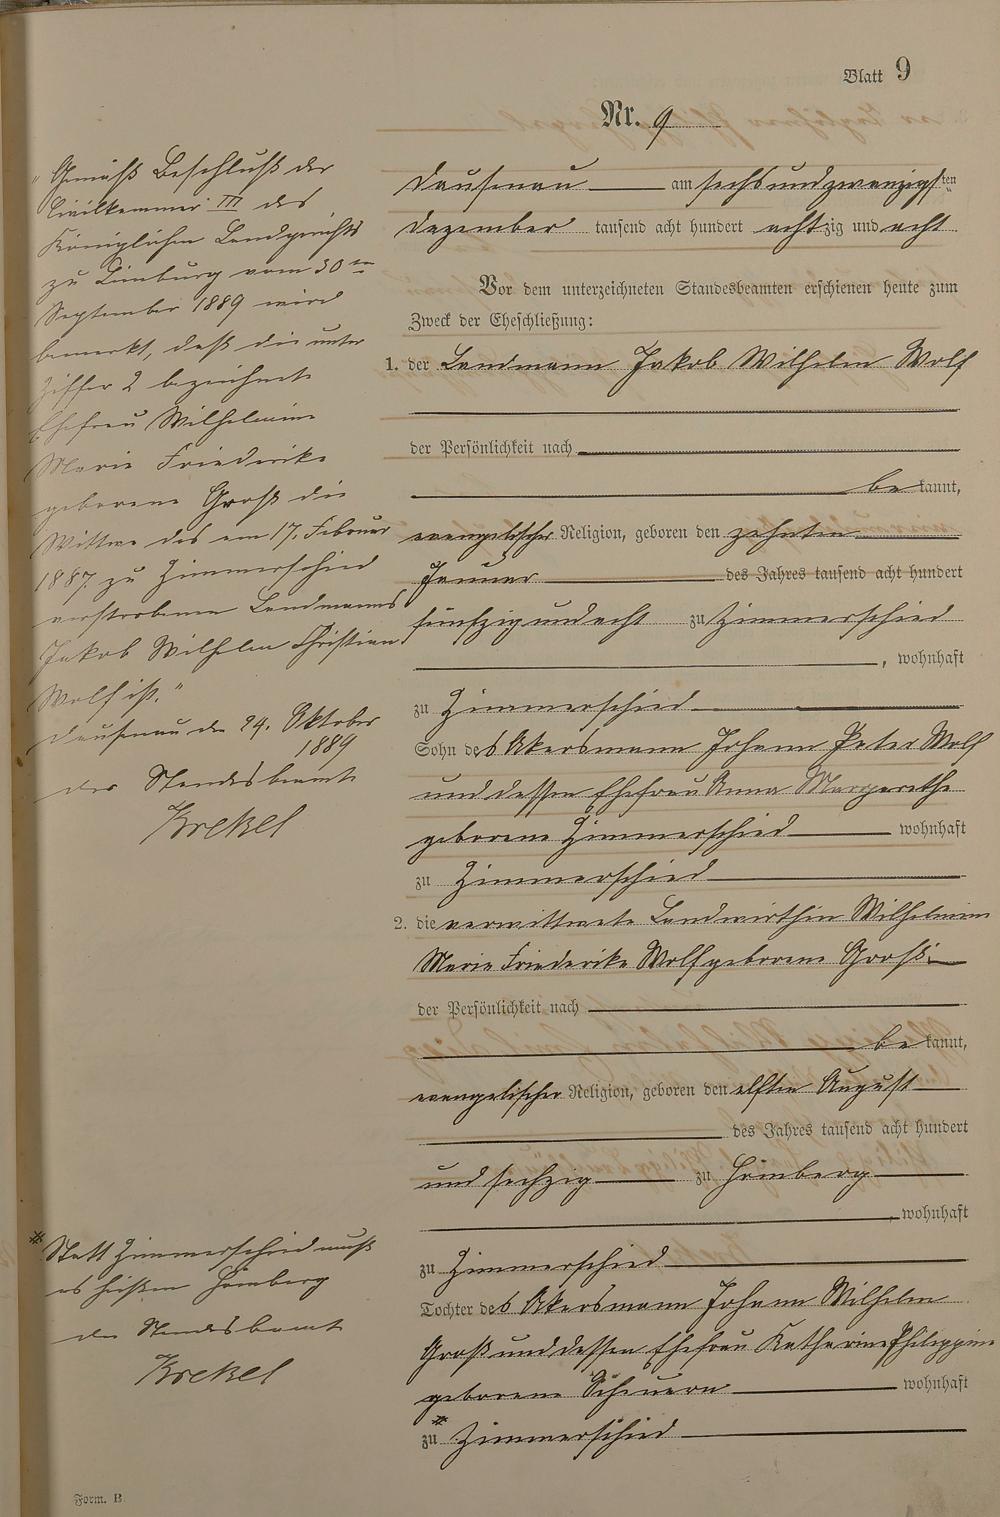 Blatt 9
Nr. 9
Dausenau am sechsundzwanzigsten
Dezember tausend acht hundert achtzig und acht
Vor dem unterzeichneten Standesbeamten erschienen heute zum
Zweck der Eheschließung:
1. der Landmann Jakob Wilhelm Wolf
der Persönlichkeit nach
bekannt,
evangelischer Religion, geboren den zehnten
Januar des Jahres tausend acht hundert
fünfzig und acht zu Zimmerschied
, wohnhaft
zu Zimmerschied
Sohn des Akersmann Johann Peter Wolf
und dessen Ehefrau Anna Margarethe
geborene Zimmerschied wohnhaft
zu Zimmerschied
2. die verwittwete Landwirthin Wilhelmine
Marie Friederike Wolf geborene Groß
der Persönlichkeit nach
bekannt,
evangelischer Religion, geboren den elften August
des Jahres tausend acht hundert
und sechzig zu Hömberg
, wohnhaft
zu Zimmerschied
Tochter des Akersmann Johann Wilhelm
Groß und dessen Ehefrau Katharine Philippine
geborene Scheuern wohnhaft
zu * Zimmerschied
"Gemäß Beschluß der
Civilkammer III des
Königlichen Landgerichts
zu Limburg vom 30ten
September 1889 wird
bemerkt, daß die unter
Ziffer 2 bezeichnete
Ehefrau Wilhelmine
Marie Friederike
geborene Groß die
Wittwe des am 17. Februar
1887 zu Zimmerschied
verstorbenen Landmanns
Jakob Wilhelm Christian
Wolf ist."
Dausenau den 24. Oktober
1889
der Standesbeamte
Krekel
* Statt Zimmerschied muß
es heißen Hömberg
der Standesbeamt
Krekel
Form. B.